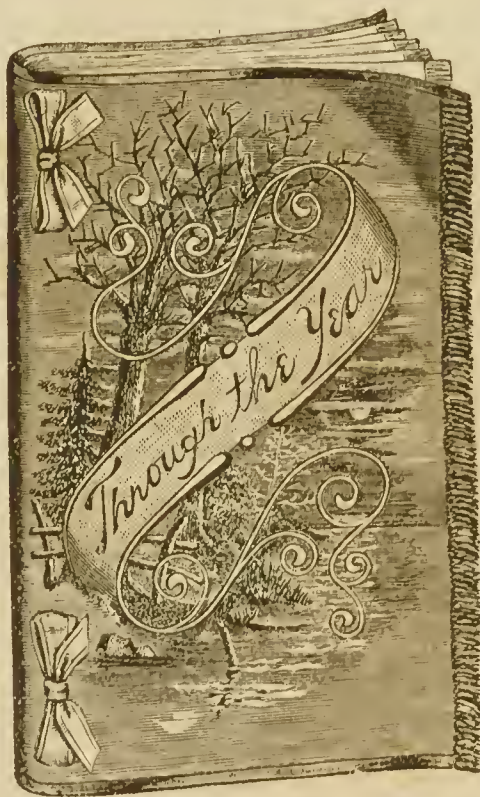 Through the Year